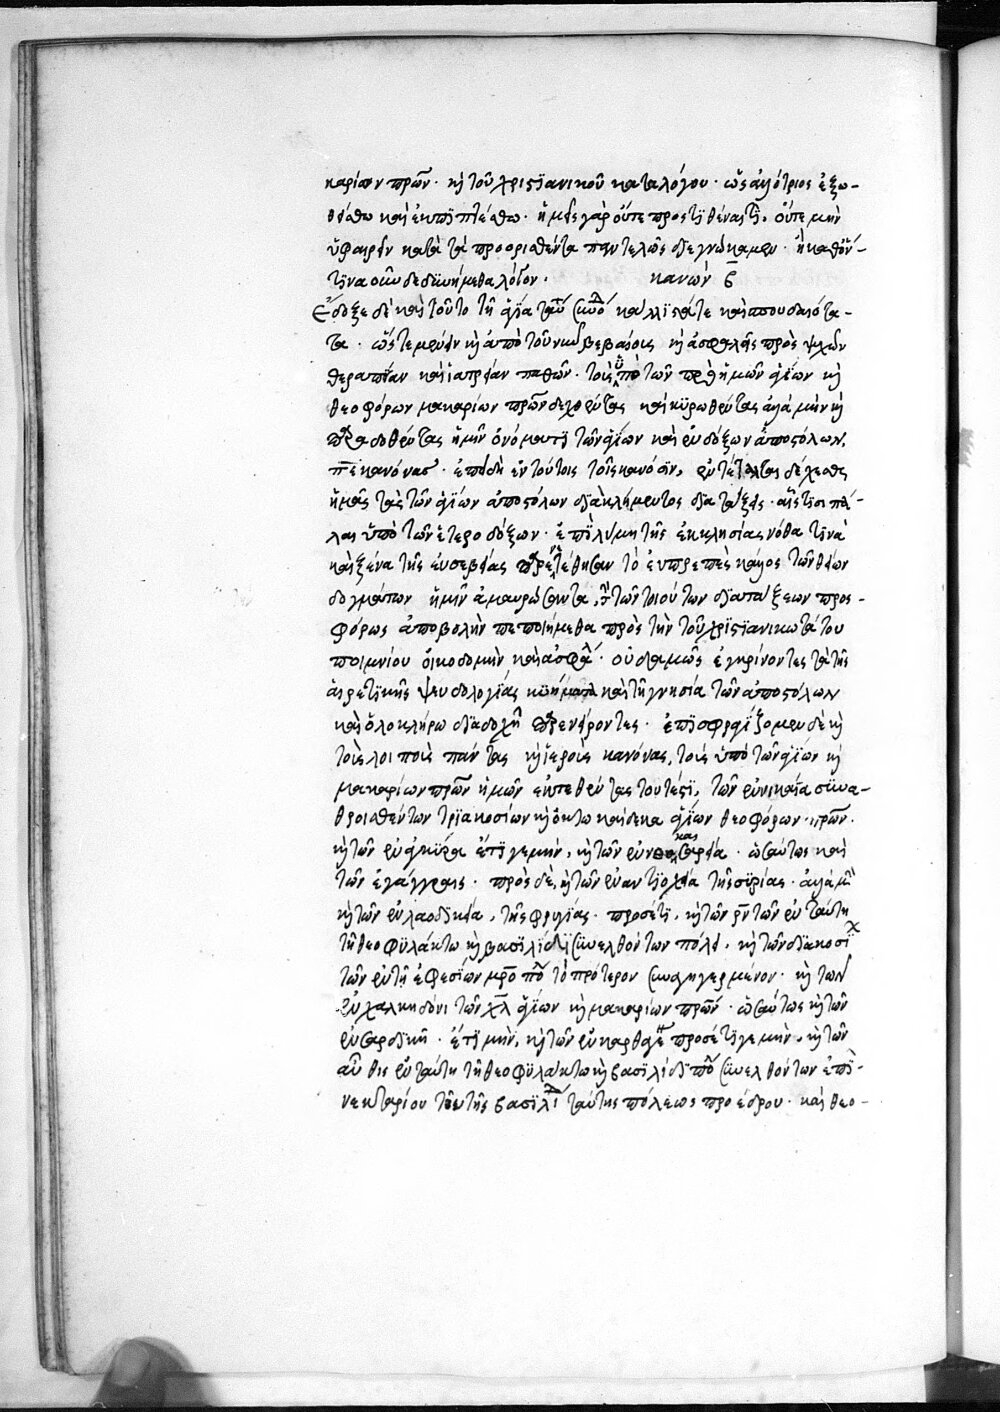 καρίων πρων· κὴ τοῦ χριστϊανικοῦ καταλόγου· ὡς ἀλλότριος ἐξω-
θείσθω καὶ ἐκπϊπτέσθω. ἡμεῖς γὰρ οὔτε προστϊθέναι τϊ, οὔτε μὴν
ὑφαιρεῖν κατὰ τὰ προορισθέντα παντελῶς διεγνώκαμεν· ἢ καθ' ὅν-
τϊνα οὖν δεδϋνήμεθα λόγον. κανὼν β
Ἔδοξε δὲ καὶ τοῦτο τῆ ἁγία ταύ συνό κάλλϊστά τε καὶ σπουδαιότα-
τα· ὥστε μένειν κὴ ἀπὸ τοῦ νῦν βεβαίους κὴ ἀσφαλεῖς πρὸς ψυχῶν
θεραπείαν καὶ ἰατρείαν παθῶν· τοὺς ὑπὸ τῶν πρὸ ἡμῶν ἁγίων κὴ
θεοφόρων μακαρίων πρων δεχθέντας καὶ κϋρωθέντας ἀλλὰ μὴν κὴ
παραδοθέντας ἡμῖν ὀνόματϊ τῶν ἁγίων καὶ ἐνδόξων ἀποστόλων,
πε κανόνας· ἐπειδὴ ἐν τούτοις τοῖς κανόσϊν, ἐντέταλται δέχεσθαι
ἡμᾶς τὰς τῶν ἁγϊων ἀποστόλων διὰ κλήμεντος διατάξεις· αἷς τισι πά-
λαι ὑπὸ τῶν ἑτεροδόξων· ἐπὶ λύμη τῆς ἐκκλησίας νόθα τϊνὰ
καὶ ξένα τῆς εὐσεβείας παρενετέθησαν τὸ εὐπρεπὲς κάλλος τῶν θείων
δογμάτων ἡμῖν ἀμαυρώσαντα, τὴν τῶν τοιούτων διατάξεων προσ-
φόρως ἀποβολὴν πεποιήμεθα πρὸς τὴν τοῦ χρϊστϊανικωτάτου
ποιμνίου οἰκοδομὴν καὶ ἀσφά· οὐδαμῶς ἐγκρίνοντες τὰ τῆς
αἱρετϊκῆς ψευδολογίας κυήματα καὶ τῆ γνησία τῶν ἀποστόλων
καὶ ὁλοκλήρω διδαχῆ παρενείροντες· ἐπϊσφραγίζομεν δὲ κὴ
τοὺς λοιποὺς πάντας κὴ ἱεροὺς κανόνας, τοὺς ὑπὸ τῶν ἁγίων κὴ
μακαρίων πρων ἡμῶν ἐκτεθέντας τουτέστϊ, τῶν ἐν νικαία σϋνα-
θροισθέντων τρϊακοσίων κὴ ὀκτω καίδεκα ἁγίων θεοφόρων πρων·
κὴ τῶν ἐν ἀγκύρα ἔτϊ γε μὴν, κὴ τῶν ἐν νεοκαισαρεία· ὡσαύτως καὶ
τῶν ἐν γάγγραις· πρὸς δὲ, κὴ τῶν ἐν αντϊοχεία τῆς συρίας· ἀλλὰ μὴν
κὴ τῶν ἐν λαοδικεία, τῆς φρυγίας· προσέτϊ, κὴ τῶν ρν τῶν ἐν ταύτη
τῆ θεοφϋλάκτω κὴ βασϊλίδϊ συνελθόντων πόλει, κὴ τῶν διακοσί
τῶν ἐν τῆ ἐφεσίων μρο πο τὸ πρότερον συναγηγερμένον· κὴ των
ἐν χαλκηδόνι τῶν χλ ἁγίων κὴ μακαρίων πρων· ὡσαύτως κὴ τῶν
ἐν σαρδικῆ· ἔτϊ μὴν, κὴ τῶν ἐν καρθαγέ προσέτϊ γε μὴν, κὴ τῶν
αὖθις ἐν ταύτη τῆ θεοφϋλάκτω κὴ βασιλίδι πο συνελθόντων ἐπϊ-
νεκταρίου τοῦ τῆς βασϊλί ταύτης πόλεως προέδρου· καὶ θεο-